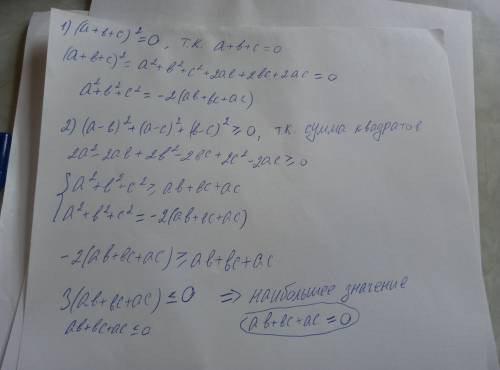 1) (a+b+c)²=0, т.к. a+b+c=0
(a+b+c)²= a²+b²+c²+2ab+2bc+2ac=0
a²+b²+c²=-2(ab+bc+ac)
2) (a-b)²+(a-c)²+(b-c)²≥0, т.к. сумма квадратов
2a²-2ab+2b²-2bc+2c²-2ac≥0
{a²+b²+c²≥ab+bc+ac
a²+b²+c²=-2(ab+bc+ac)
-2(ab+bc+ac)≥ab+bc+ac
3(ab+bc+ac)≤0 => наибольшее значение
ab+bc+ac≤0 ab+bc+ac=0